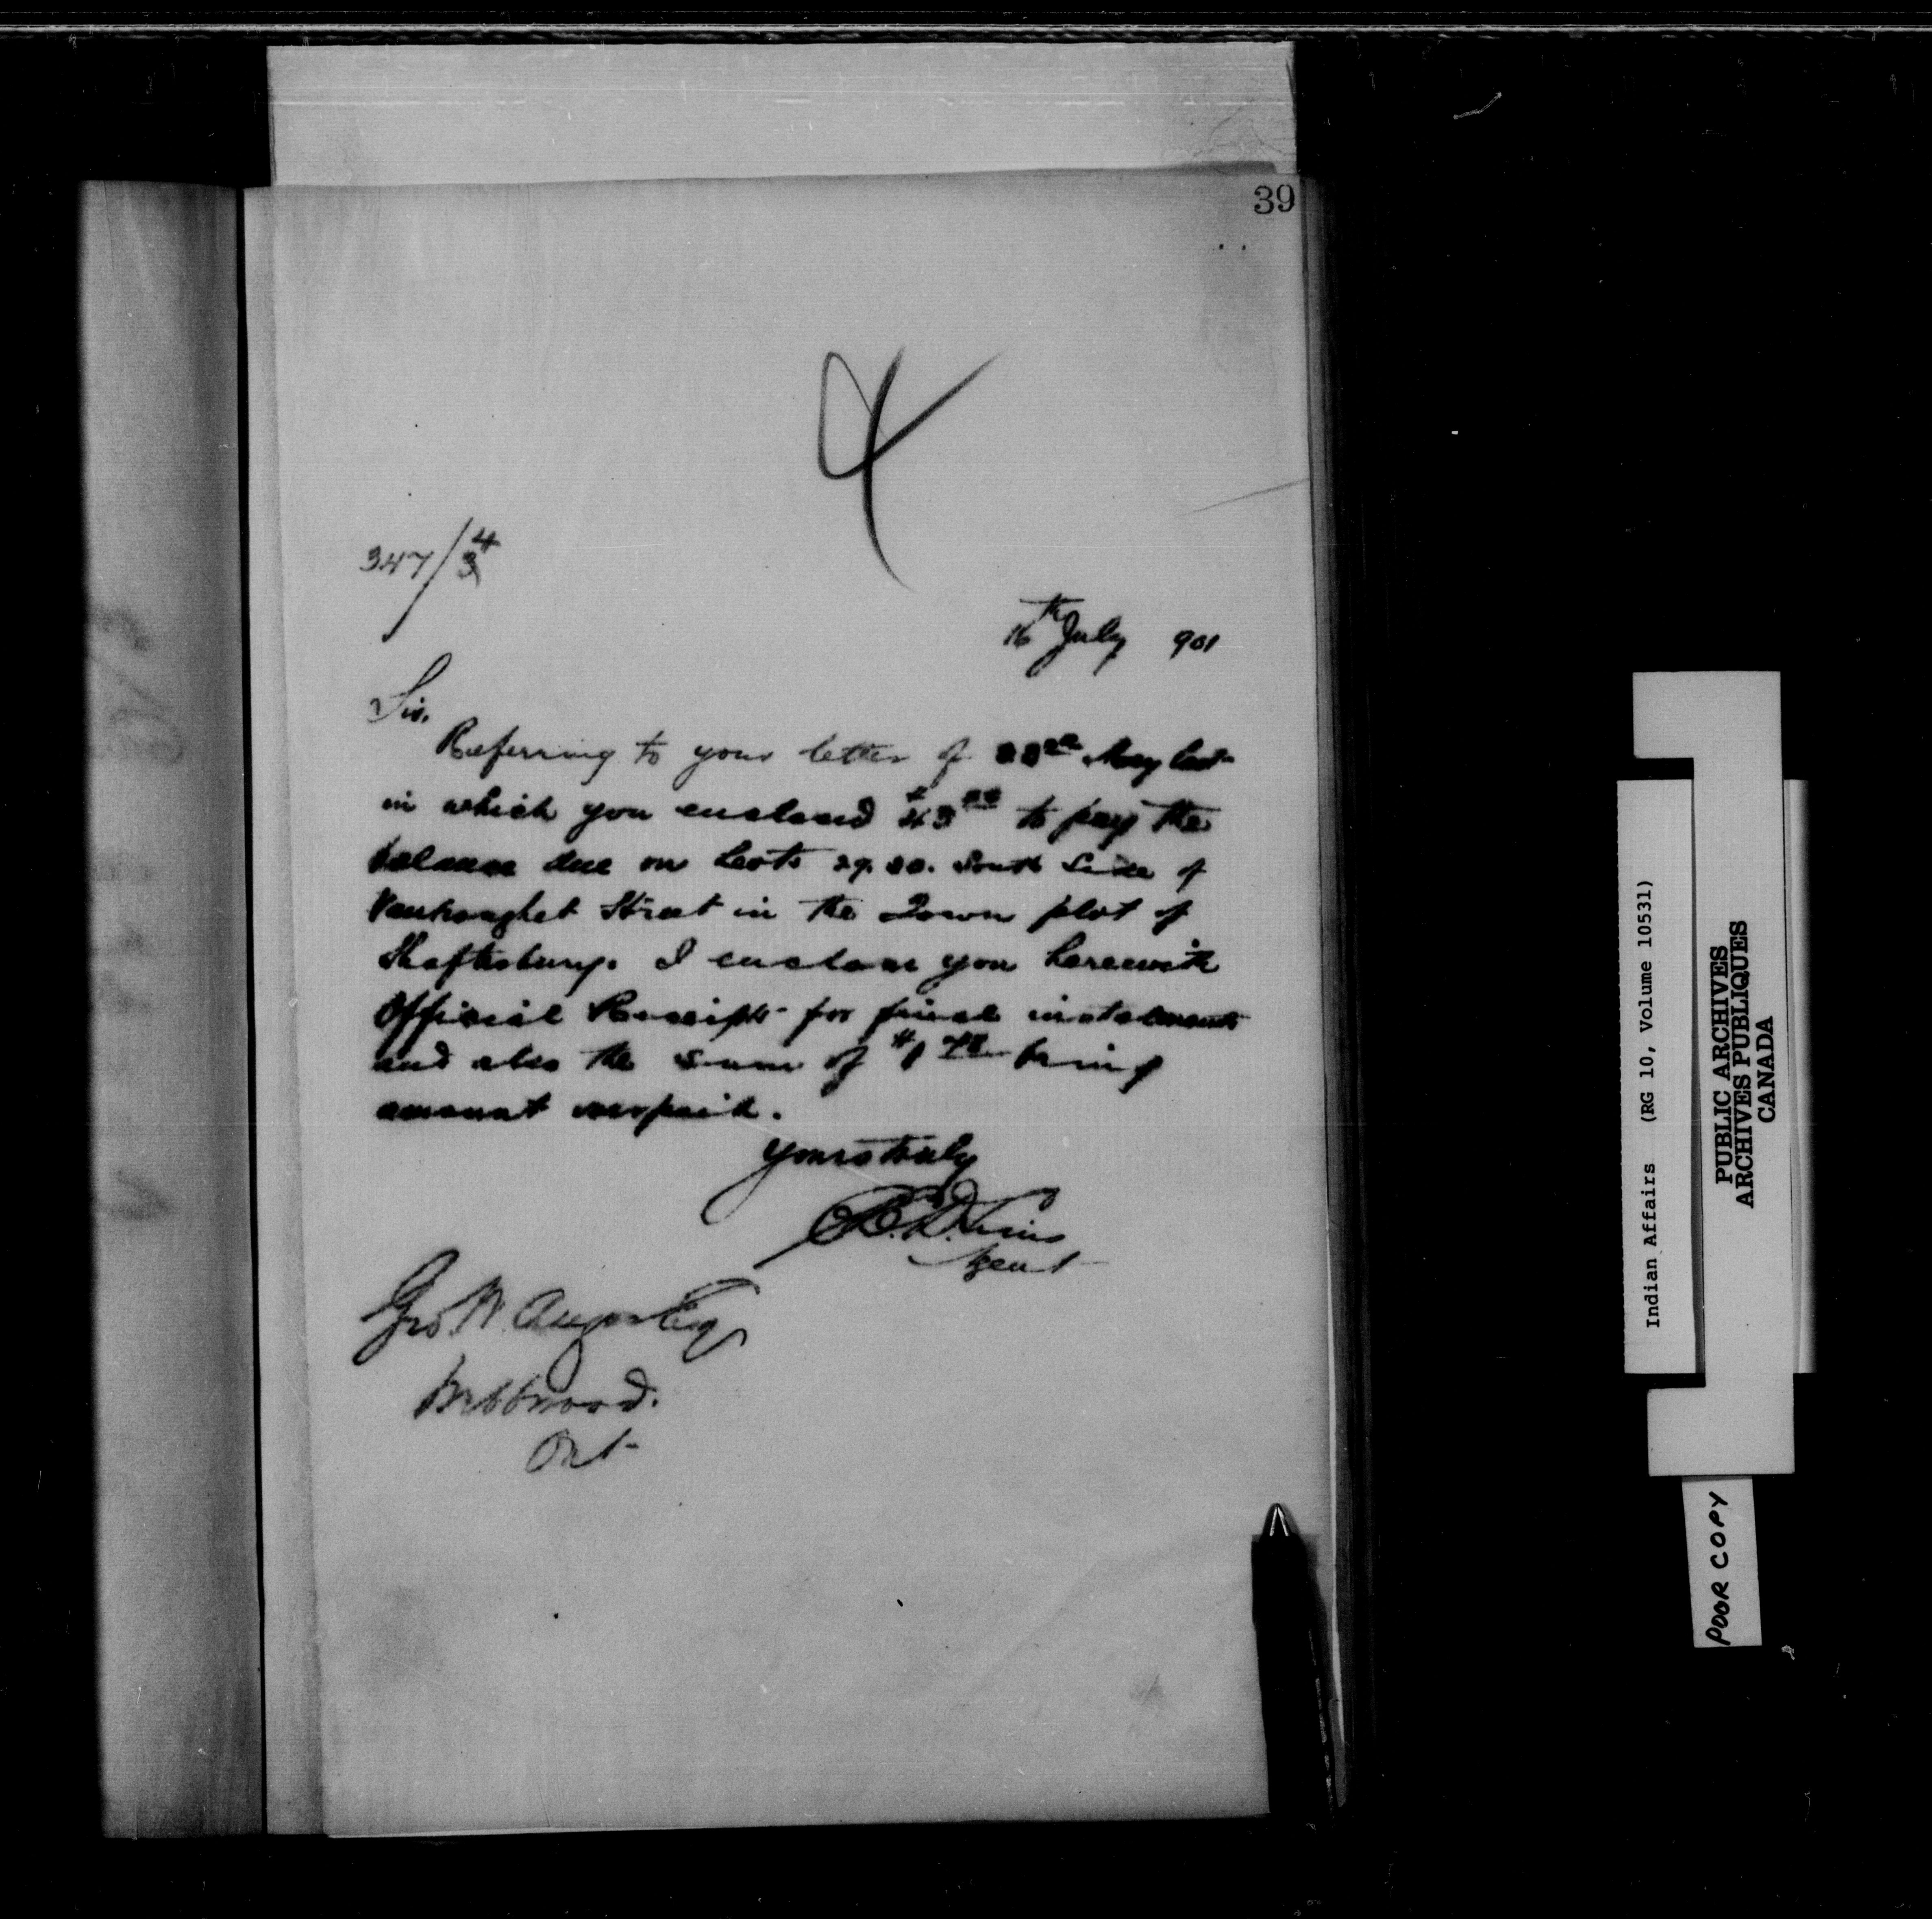 39
4
347/3
4
16th July 901
Sir.
Referring to your letter of May last
in which you enclosed to pay the
balance due on Lots 29. 30. South Side of
Vankoughet Street in the Town plot of
Shaftesbury. I enclose you herewith
Official Receipt for final instalments
and also the sum of being
amount overpaid.
Yours truly
Agent
Geo. Esq
Webbwood.
Ont
Indian Affairs (RG 10, Volume 10531)
PUBLIC ARCHIVES
ARCHIVES PUBLIQUES
CANADA
POOR COPY